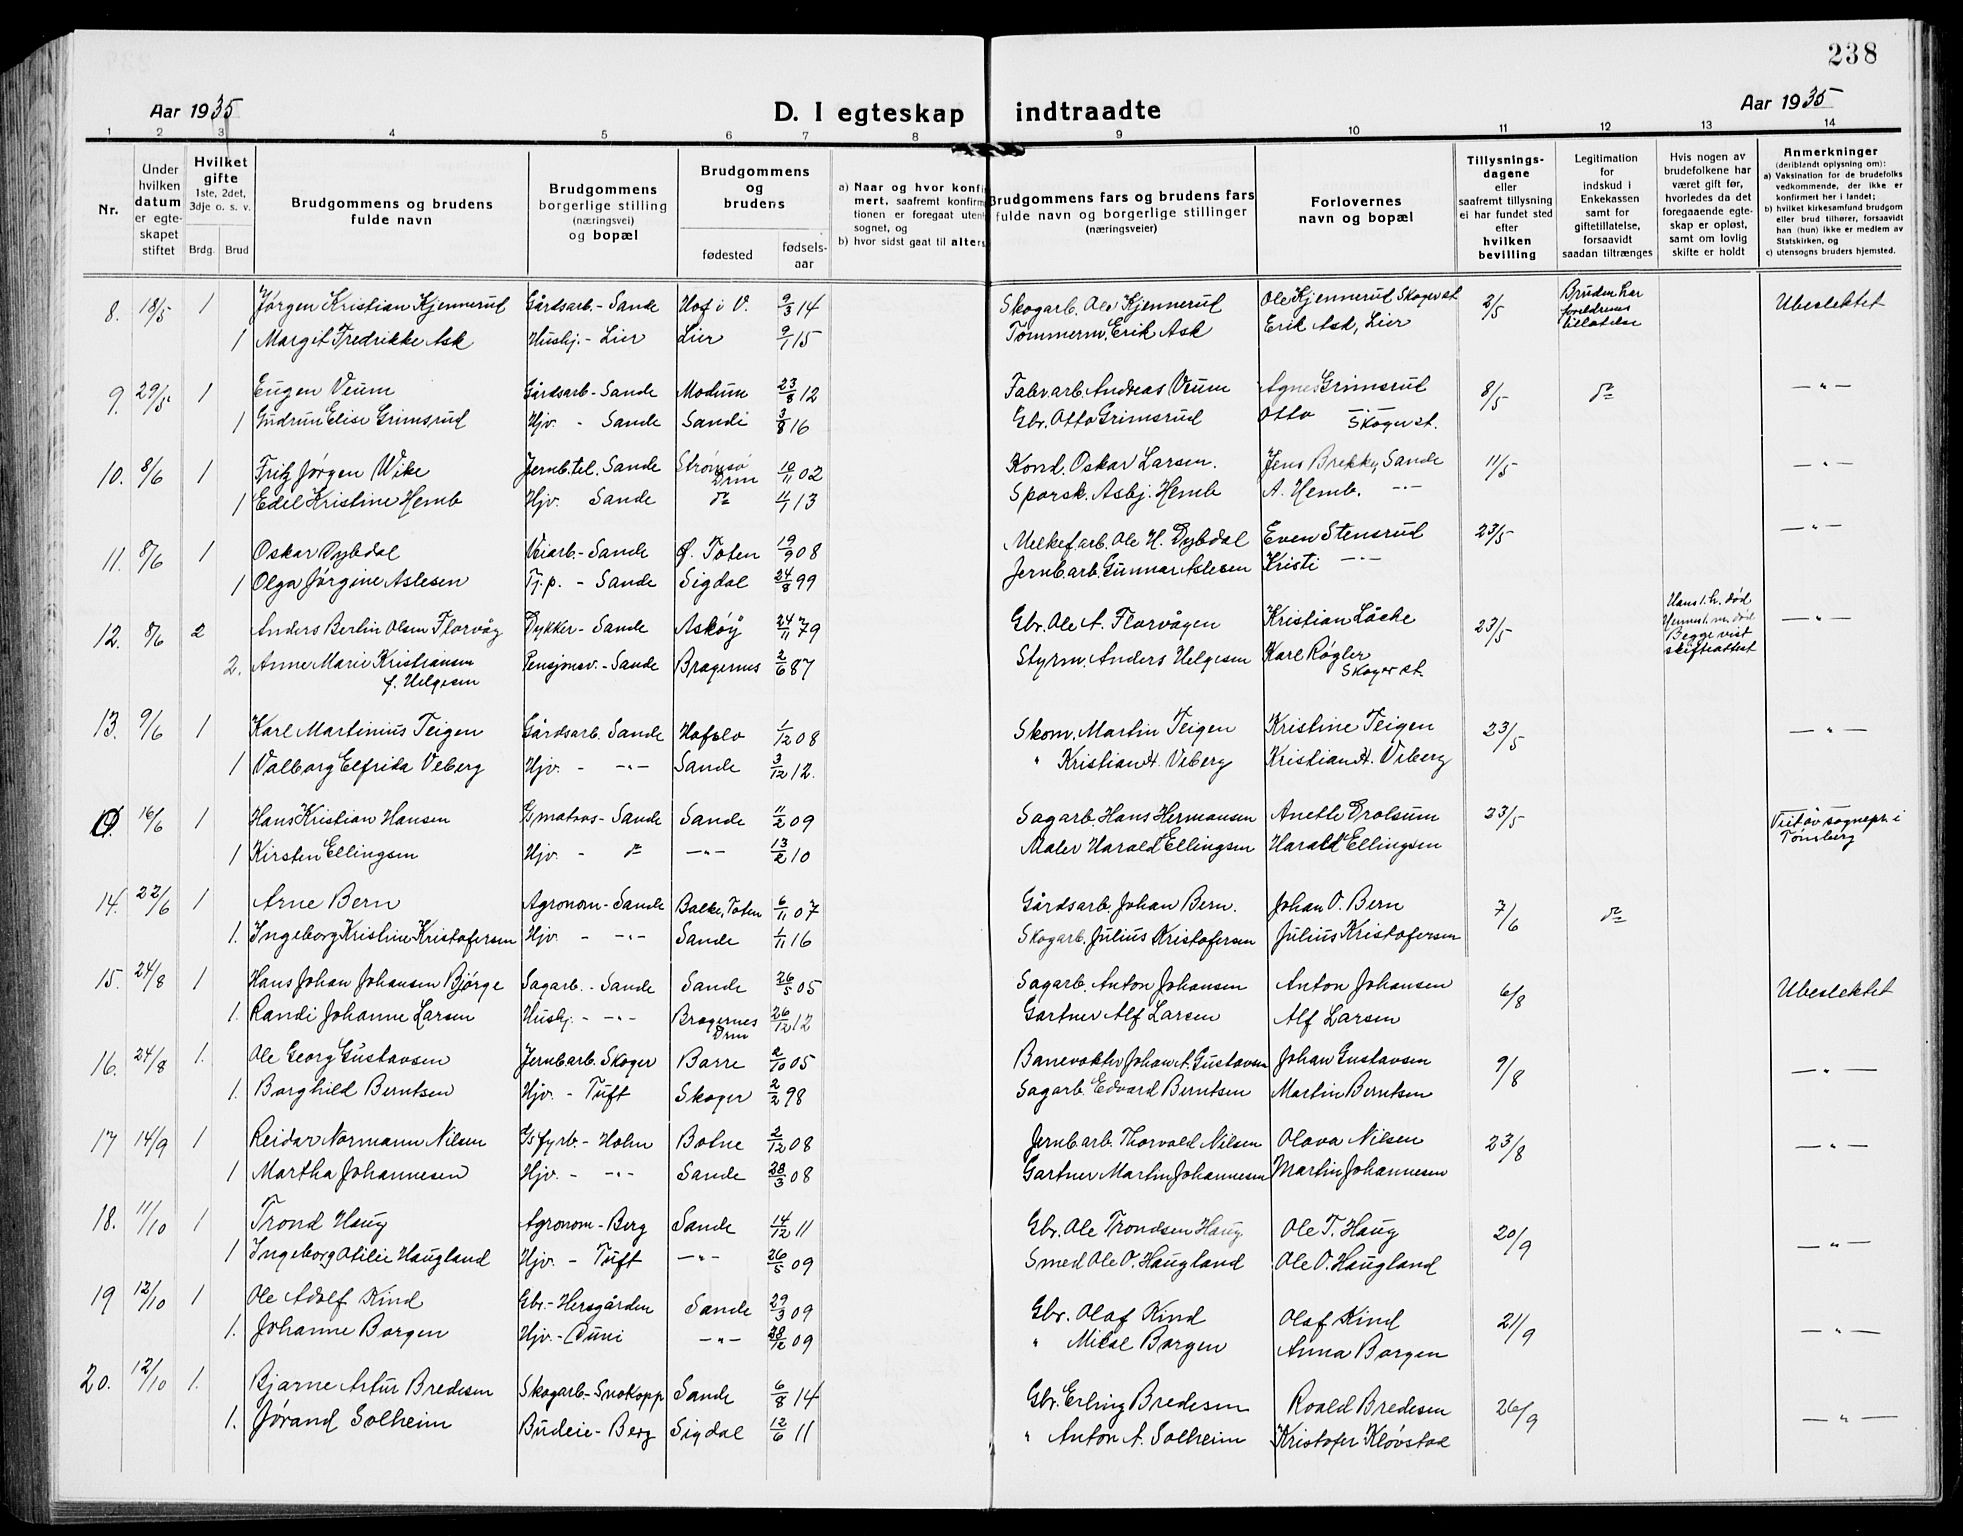 238
Aar 1935
D. I egteskap indtraadte
Aar 1935
1 2 3 4 5 6 7 8 9 10 11 12 13 14
Nr.
Under hvilken datum er egteskapet stiftet
Hvilket gifte 1ste, 2det, 3dje o. s. v.
Brdg. Brud
Brudgommens og brudens fulde navn
Brudgommens borgerlige stilling (næringsvei) og bopæl
Brudgommens og brudens
fødested
fødsels-aar
a) Naar og hvor konfirmert, saafremt konfirmationen er foregaat utenfor sognet, og
b) hvor sidst gaat til alters
Brudgommens fars og brudens fars fulde navn og borgerlige stillinger (næringsveier)
Forlovernes navn og bopæl
Tillysnings-dagene eller saafremt tillysning ei har fundet sted efter hvilken bevilling
Legitimation for indskud i Enkekassen samt for giftetillatelse, forsaavidt saadan tiltrænges
Hvis nogen av brudefolkene har været gift før, hvorledes da det foregaaende egteskap er opløst, samt om lovlig skifte er holdt
Anmerkninger (deriblandt oplysning om):
a) Vaksination for de brudefolks vedkommende, der ikke er konfirmert her i landet;
b) hvilket kirkesamfund brudgom eller brud tilhører, forsaavidt han (hun) ikke er medlem av Statskirken, og
c) utensogns bruders hjemsted.
8. 18/5 1 Jørgen Kristian Kjennerud Gårdsarb.- Sande Hof i V. 9/3 14 Skogarb. Ole Kjennerud Ole Kjennerud Skoger st. 2/5 Bruden har foreldrenes tillatelse Ubeslektet
1 Margit Fredrikke Ask Hushj.- Lier Lier 9/1 15 Tømmerm. Erik Ask Erik Ask, Lier
9. 29/5 1 Eugen Veum Gårdsarb- Sande Modum 23/8 12 Fabr.arb. Andreas Veum Agnes Grimsrud 8/5 do — " —
1 Gudrun Elise Grimsrud Hjv. - Sande Sande 3/8 16 Gbr. Otto Grimsrud Otto —"— Skoger st.
10. 8/6 1 Fritz Jørgen Wike Jernb.tel. Sande Strømsø Drm 10/11 02 Kond. Oskar Larsen. Jens Brekke, Sande 11/5 — " —
1 Edel Kristine Hemb Hjv. Sande do 4/1 13 Sporsk. Asbj. Hemb A. Hemb. —"—
11. 8/6 1 Oskar Dybdal Veiarb- Sande Ø. Toten 19/9 08 Melkef.arb. Ole H. Dybdal Even Stensrud 23/5 — " —
1 Olga Jørgine Aslesen Tj.p. - Sande Sigdal 24/8 99 Jernb.arb. Gunnar Aslesen Kristi —"—
12. 8/6 2 Anders Berlin Olsen Florvåg Dykker- Sande Askøy 24/11 79 Gbr. Ole A. Florvågen Kristian Låche 23/5 Hans 1. h. død Hennes 1. m. død Begge vist skifteattest — " —
2. Anne Marie Kristiansen f. Helgesen Pensjonsv.- Sande Bragernes 2/6 87 Styrm. Anders Helgesen Karl Røgler Skoger st.
13. 9/6 1 Karl Martinius Teigen Gårdsarb. Sande Hafslo 1/12 08 Skom. Martin Teigen Kristine Teigen 23/5 — " —
1 Valborg Elfrida Viberg Hjv. - —"— Sande 3/12 12. " Kristian H. Viberg Kristian H. Viberg
16/6 1 Hans Kristian Hansen Gmatros- Sande Sande 11/2 09 Sagarb. Hans Hermansen Anette Drolsum 23/5 Viet av sognepr. i Tønsberg
1 Kirsten Ellingsen Hjv. - do —"— 13/2 10 Maler Harald Ellingsen Harald Ellingsen
14. 22/6 1 Arne Bern Agronom- Sande Balke, Toten 6/11 07 Gårdsarb. Johan Bern. Johan O. Bern 7/6 do
1. Ingeborg Kristine Kristofersen Hjv. - —"— Sande 1/11 16 Skogarb. Julius Kristofersen Julius Kristofersen
15. 24/8 1 Hans Johan Johansen Bjørge Sagarb. - Sande Sande 26/5 05 Sagarb. Anton Johansen Anton Johansen 6/8 Ubeslektet
1. Randi Johanne Larsen Hushj. - —"— Bragernes Drm 26/12 12 Gartner Alf Larsen Alf Larsen
16. 24/8 1. Ole Georg Gustavsen Jernbarb. Skoger Borre 2/10 05 Banevokter Johan A. Gustavsen Johan Gustavsen 9/8 — " —
1. Borghild Berntsen Hjv. - Tuft Skoger 2/2 98 Sagarb. Edvard Berntsen Martin Berntsen
17 14/9 1 Reidar Normann Nilsen fyrb.- Holm Botne 2/12 08 Jernbarb. Thorvald Nilsen Olava Nilsen 23/8 — " —
1 Martha Johannesen Hjv. - —"— Sande 28/3 08 Gartner Martin Johannesen Martin Johannesen
18. 11/10 1 Trond Haug Agronom- Berg Sande 14/12 11 Gbr. Ole Trondsen Haug. Ole T. Haug 20/9 — " —
1 Ingeborg Otilie Haugland Hjv. - Tuft —"— 26/5 09 Smed Ole O. Haugland Ole O. Haugland
19 12/10 1 Ole Adolf Kind Gbr.- Hersgården Sande 29/3 09 Gbr. Olaf Kind Olaf Kind 21/9 — " —
1. Johanne Borgen Hjv.- —"— 28/12 09 " Mikal Borgen Anna Borgen
20. 12/10 1. Bjarne Artur Bredesen Skogarb.- Snekopp Sande 6/8 14 Gbr. Erling Bredesen Roald Bredesen 26/9 — " —
1. Jørand Solheim Budeie- Berg Sigdal 12/6 11 " Anton A. Solheim Kristofer Kløvstad